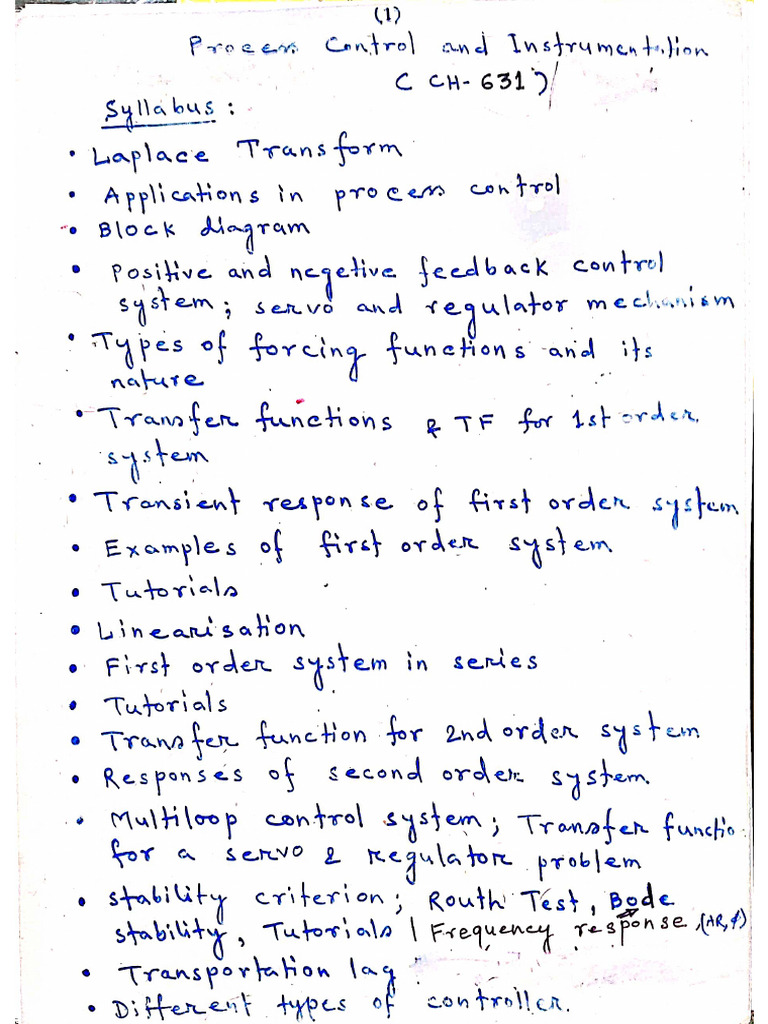 (1)
Process Control and Instrumentation
( CH-631)
Syllabus :
• Laplace Transform
• Applications in process control
• Block diagram
• Positive and negetive feedback control
system; servo and regulator mechanism
• Types of forcing functions and its
nature
• Transfer functions & TF for 1st order
system
• Transient response of first order system
• Examples of first order system
• Tutorials
• Linearisation
• First order system in series
• Tutorials
• Transfer function for 2nd order system
• Responses of second order system.
• Multiloop control system; Transfer functio
for a servo & regulator problem
• Stability criterion; Routh Test, Bode
stability, Tutorials | Frequency response, (AR, φ)
• Transportation lag
• Different types of controller.